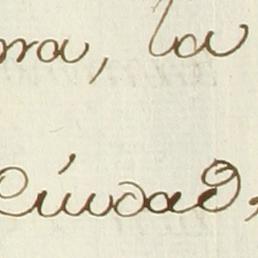 la
Ciudad,